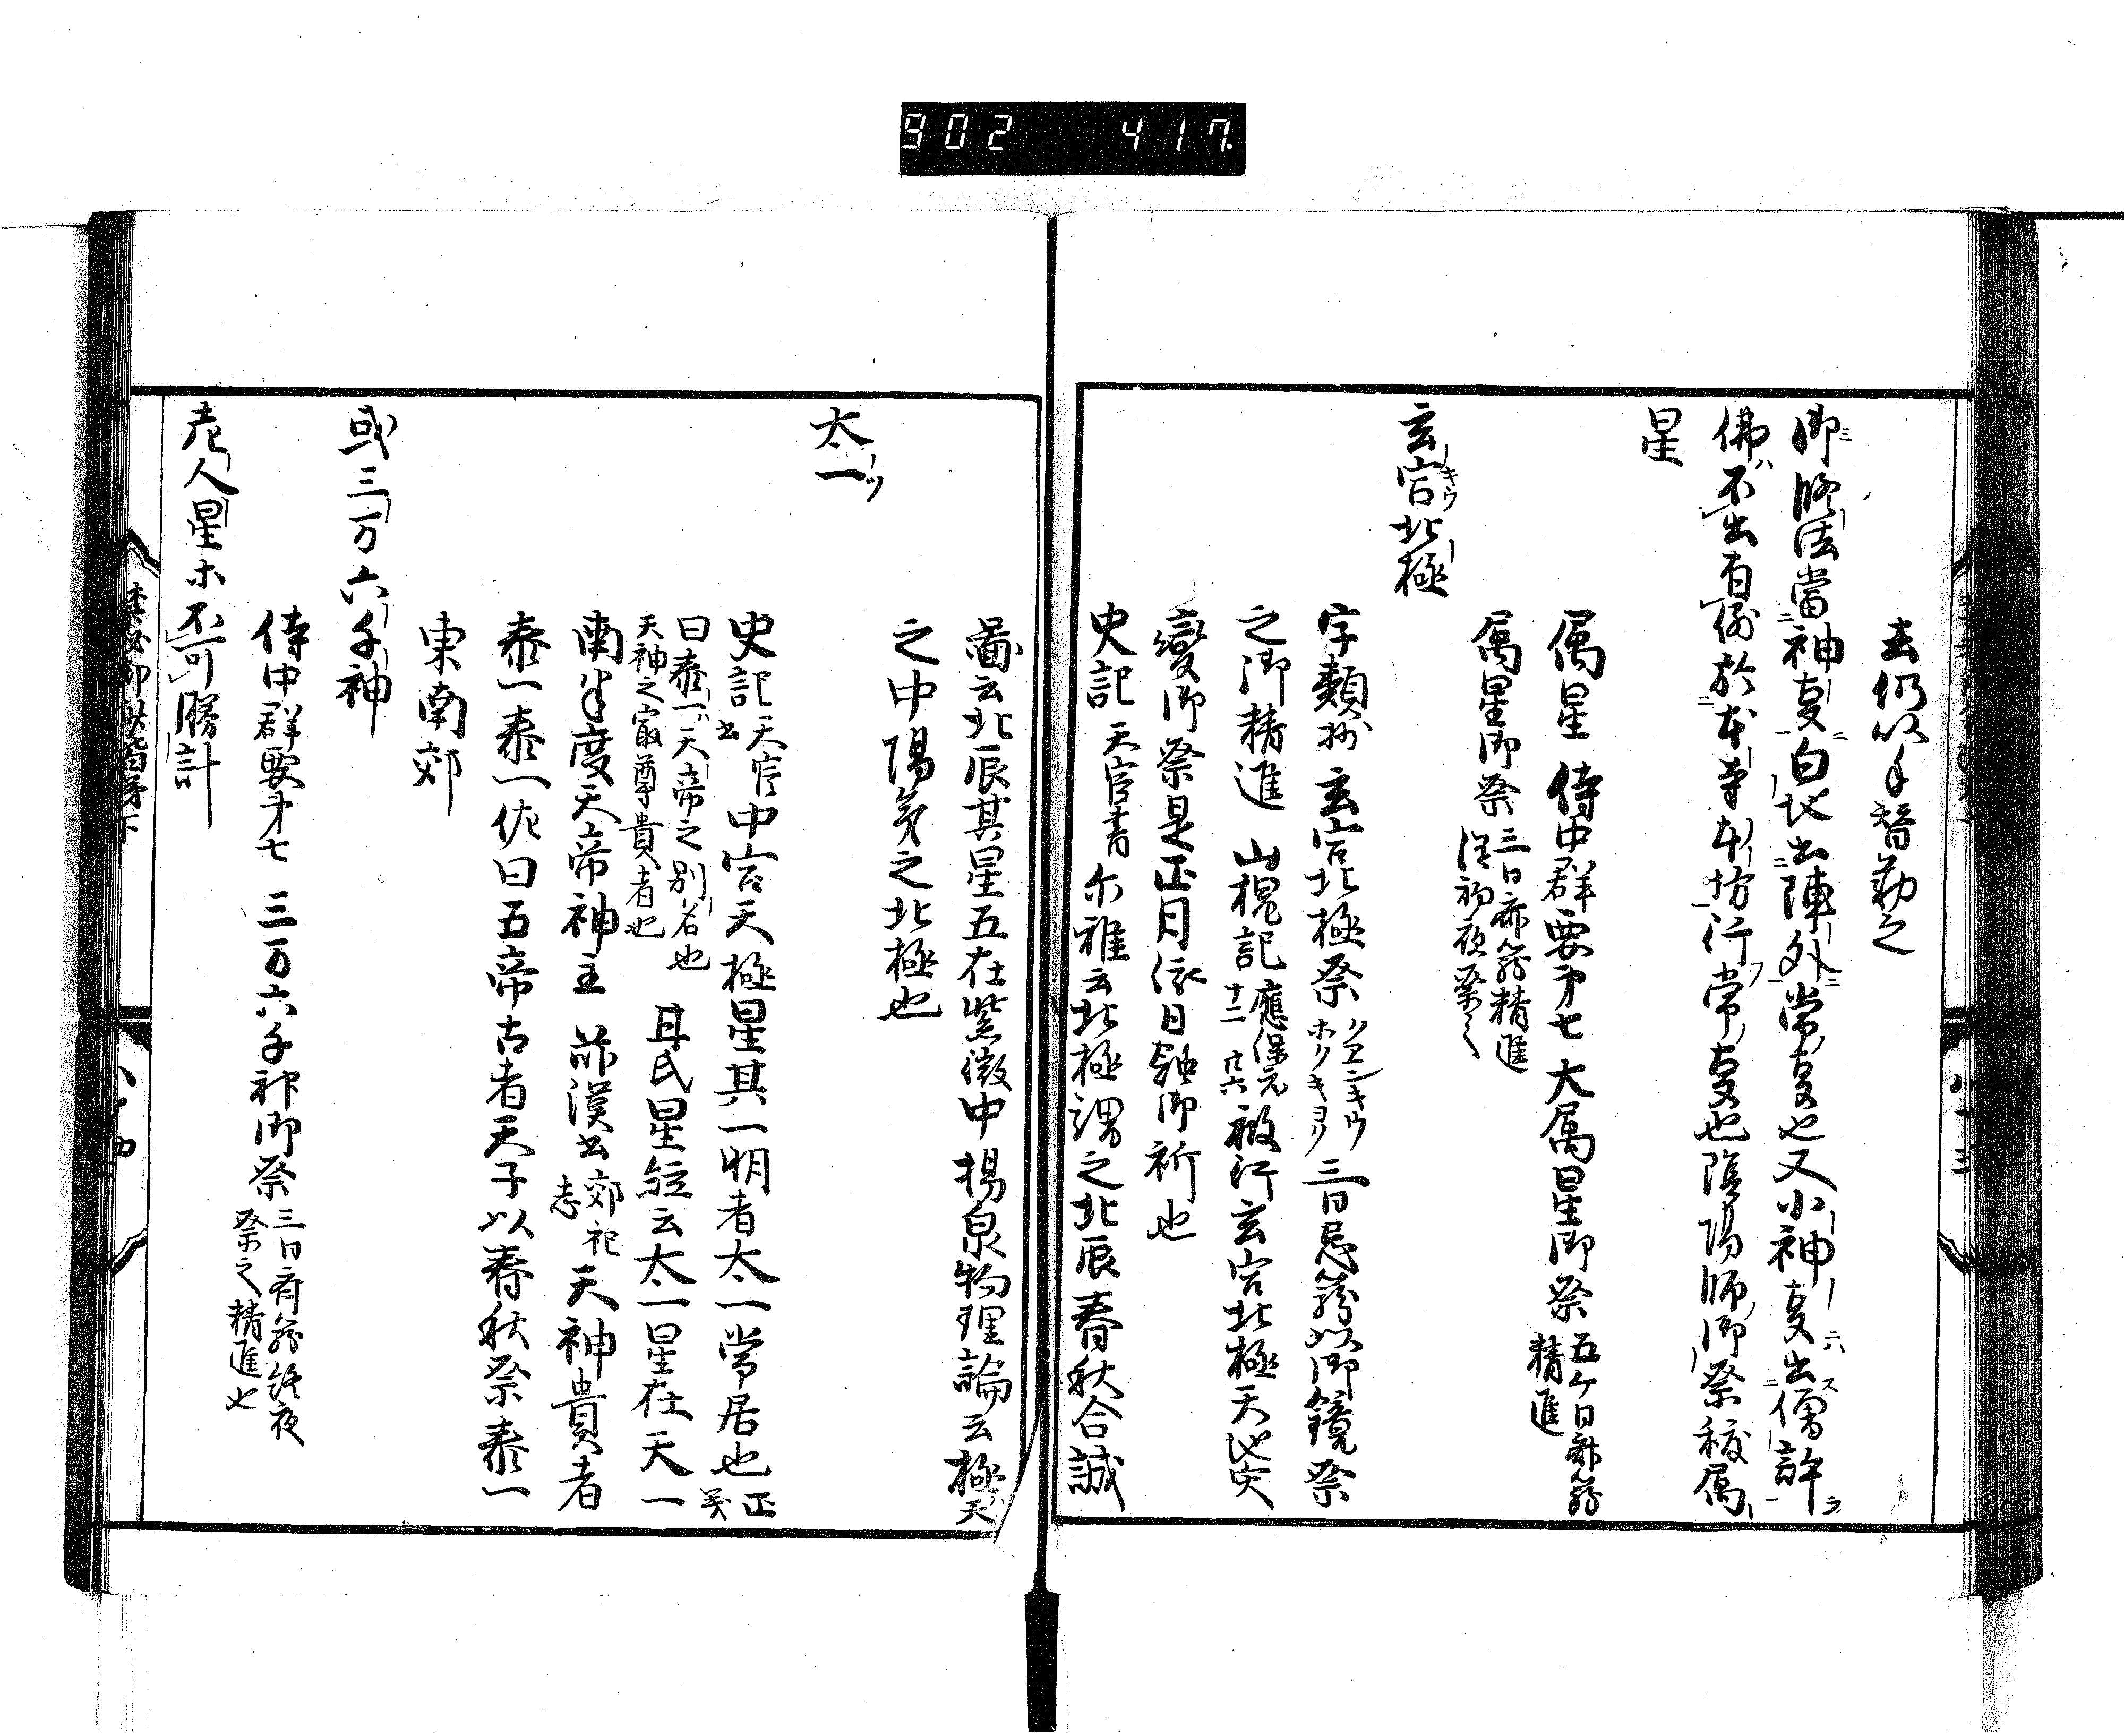 902 417
去仍以手替勤之
御修法當神事白地出陣外常事也又小神事出僧許
佛不出有例於本寺本坊行常事也陰陽師御祭稱属
星
属星 侍中群要第七 大属星御祭 五ケ日齋籠
精進
属星御祭 三日齋籠精進
謹初夜祭之
玄宮北極
字類抄 玄宮北極祭 クエンキウ
ホクキヨク 三日忌籠以御鏡祭
之御精進 山槐記 應保元
十二 廿六 被行玄宮北極天地災
變御祭是正月依日蝕御祈也
史記 天官書 尓雅云北極謂之北辰春秋合誠
圖云北辰其星五在紫微中 揚泉物理論云極天
之中陽氣之北極也
太一
史記 天官
書 中宮天極星其一明者太一常居也 正
義
曰泰一天帝之別名也
天神之最尊貴者也 耳氏星經云太一星在天一
南半度天帝神主 前漢書 郊祀
志 天神貴者
泰一泰一佐曰五帝古者天子以春秋祭泰一
東南郊
或三万六千神
侍中群要第七 三万六千神御祭 三日齋籠終夜
祭之精進也
老人星ホ不可勝計
禁秘御抄階梯下